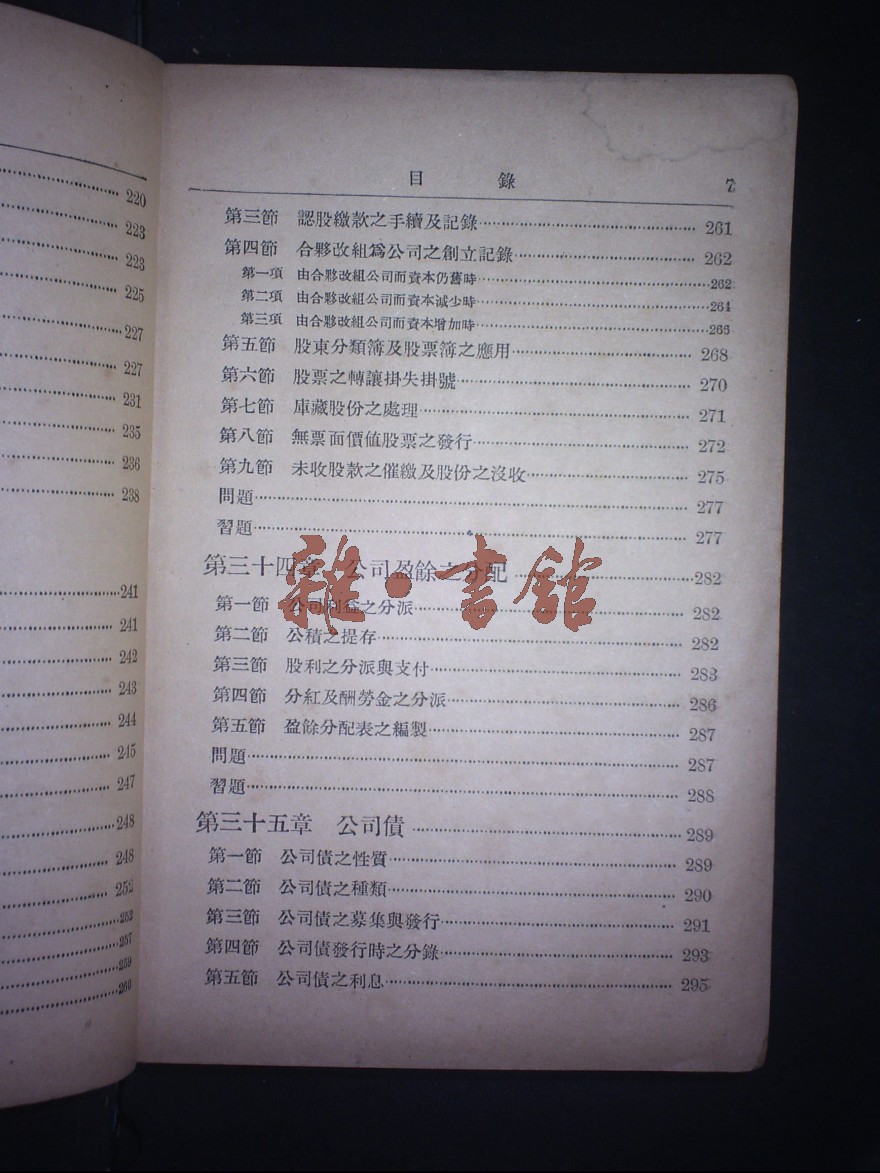 220
223
223
225
227
227
231
235
236
238
241
241
242
243
244
245
247
248
248
252
253
257
259
260
目 錄 7
第三節 認股繳款之手續及記錄 261
第四節 合夥改組爲公司之創立記錄 262
第一項 由合夥改組公司而資本仍舊時 262
第二項 由合夥改組公司而資本減少時 264
第三項 由合夥改組公司而資本增加時 266
第五節 股東分類簿及股票簿之應用 268
第六節 股票之轉讓掛失掛號 270
第七節 庫藏股份之處理 271
第八節 無票面價值股票之發行 272
第九節 未收股款之催繳及股份之沒收 275
問題 277
習題 277
第三十四章 公司盈餘之分配 282
第一節 公司利益之分派 282
第二節 公積之提存 282
第三節 股利之分派與支付 283
第四節 分紅及酬勞金之分派 286
第五節 盈餘分配表之編製 287
問題 287
習題 288
第三十五章 公司債 289
第一節 公司債之性質 289
第二節 公司債之種類 290
第三節 公司債之募集與發行 291
第四節 公司債發行時之分錄 293
第五節 公司債之利息 295
雜·書館